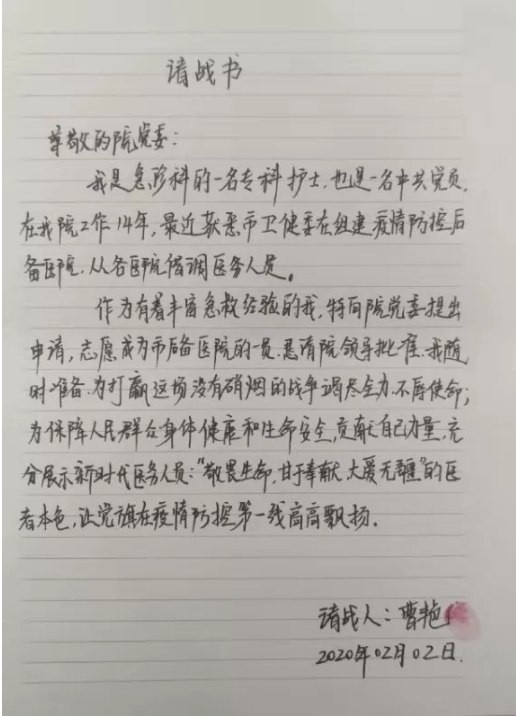 请战书
尊敬的院党委：
我是急诊科的一名专科护士，也是一名中共党员，
在我院工作14年，最近获悉市卫健委在组建疫情防控后
备医院，从各医院借调医务人员。
作为有着丰富急救经验的我，特向院党委提出
申请，志愿成为市后备医院的一员，恳请院领导批准。我随
时准备，为打赢这场没有硝烟的战争竭尽全力，不辱使命；
为保障人民群众身体健康和生命安全，贡献自己力量，充
分展示新时代医务人员：“敬畏生命，甘于奉献，大爱无疆”的医
者本色，让党旗在疫情防控第一线高高飘扬．
请战人：曹艳
2020年02月02日．